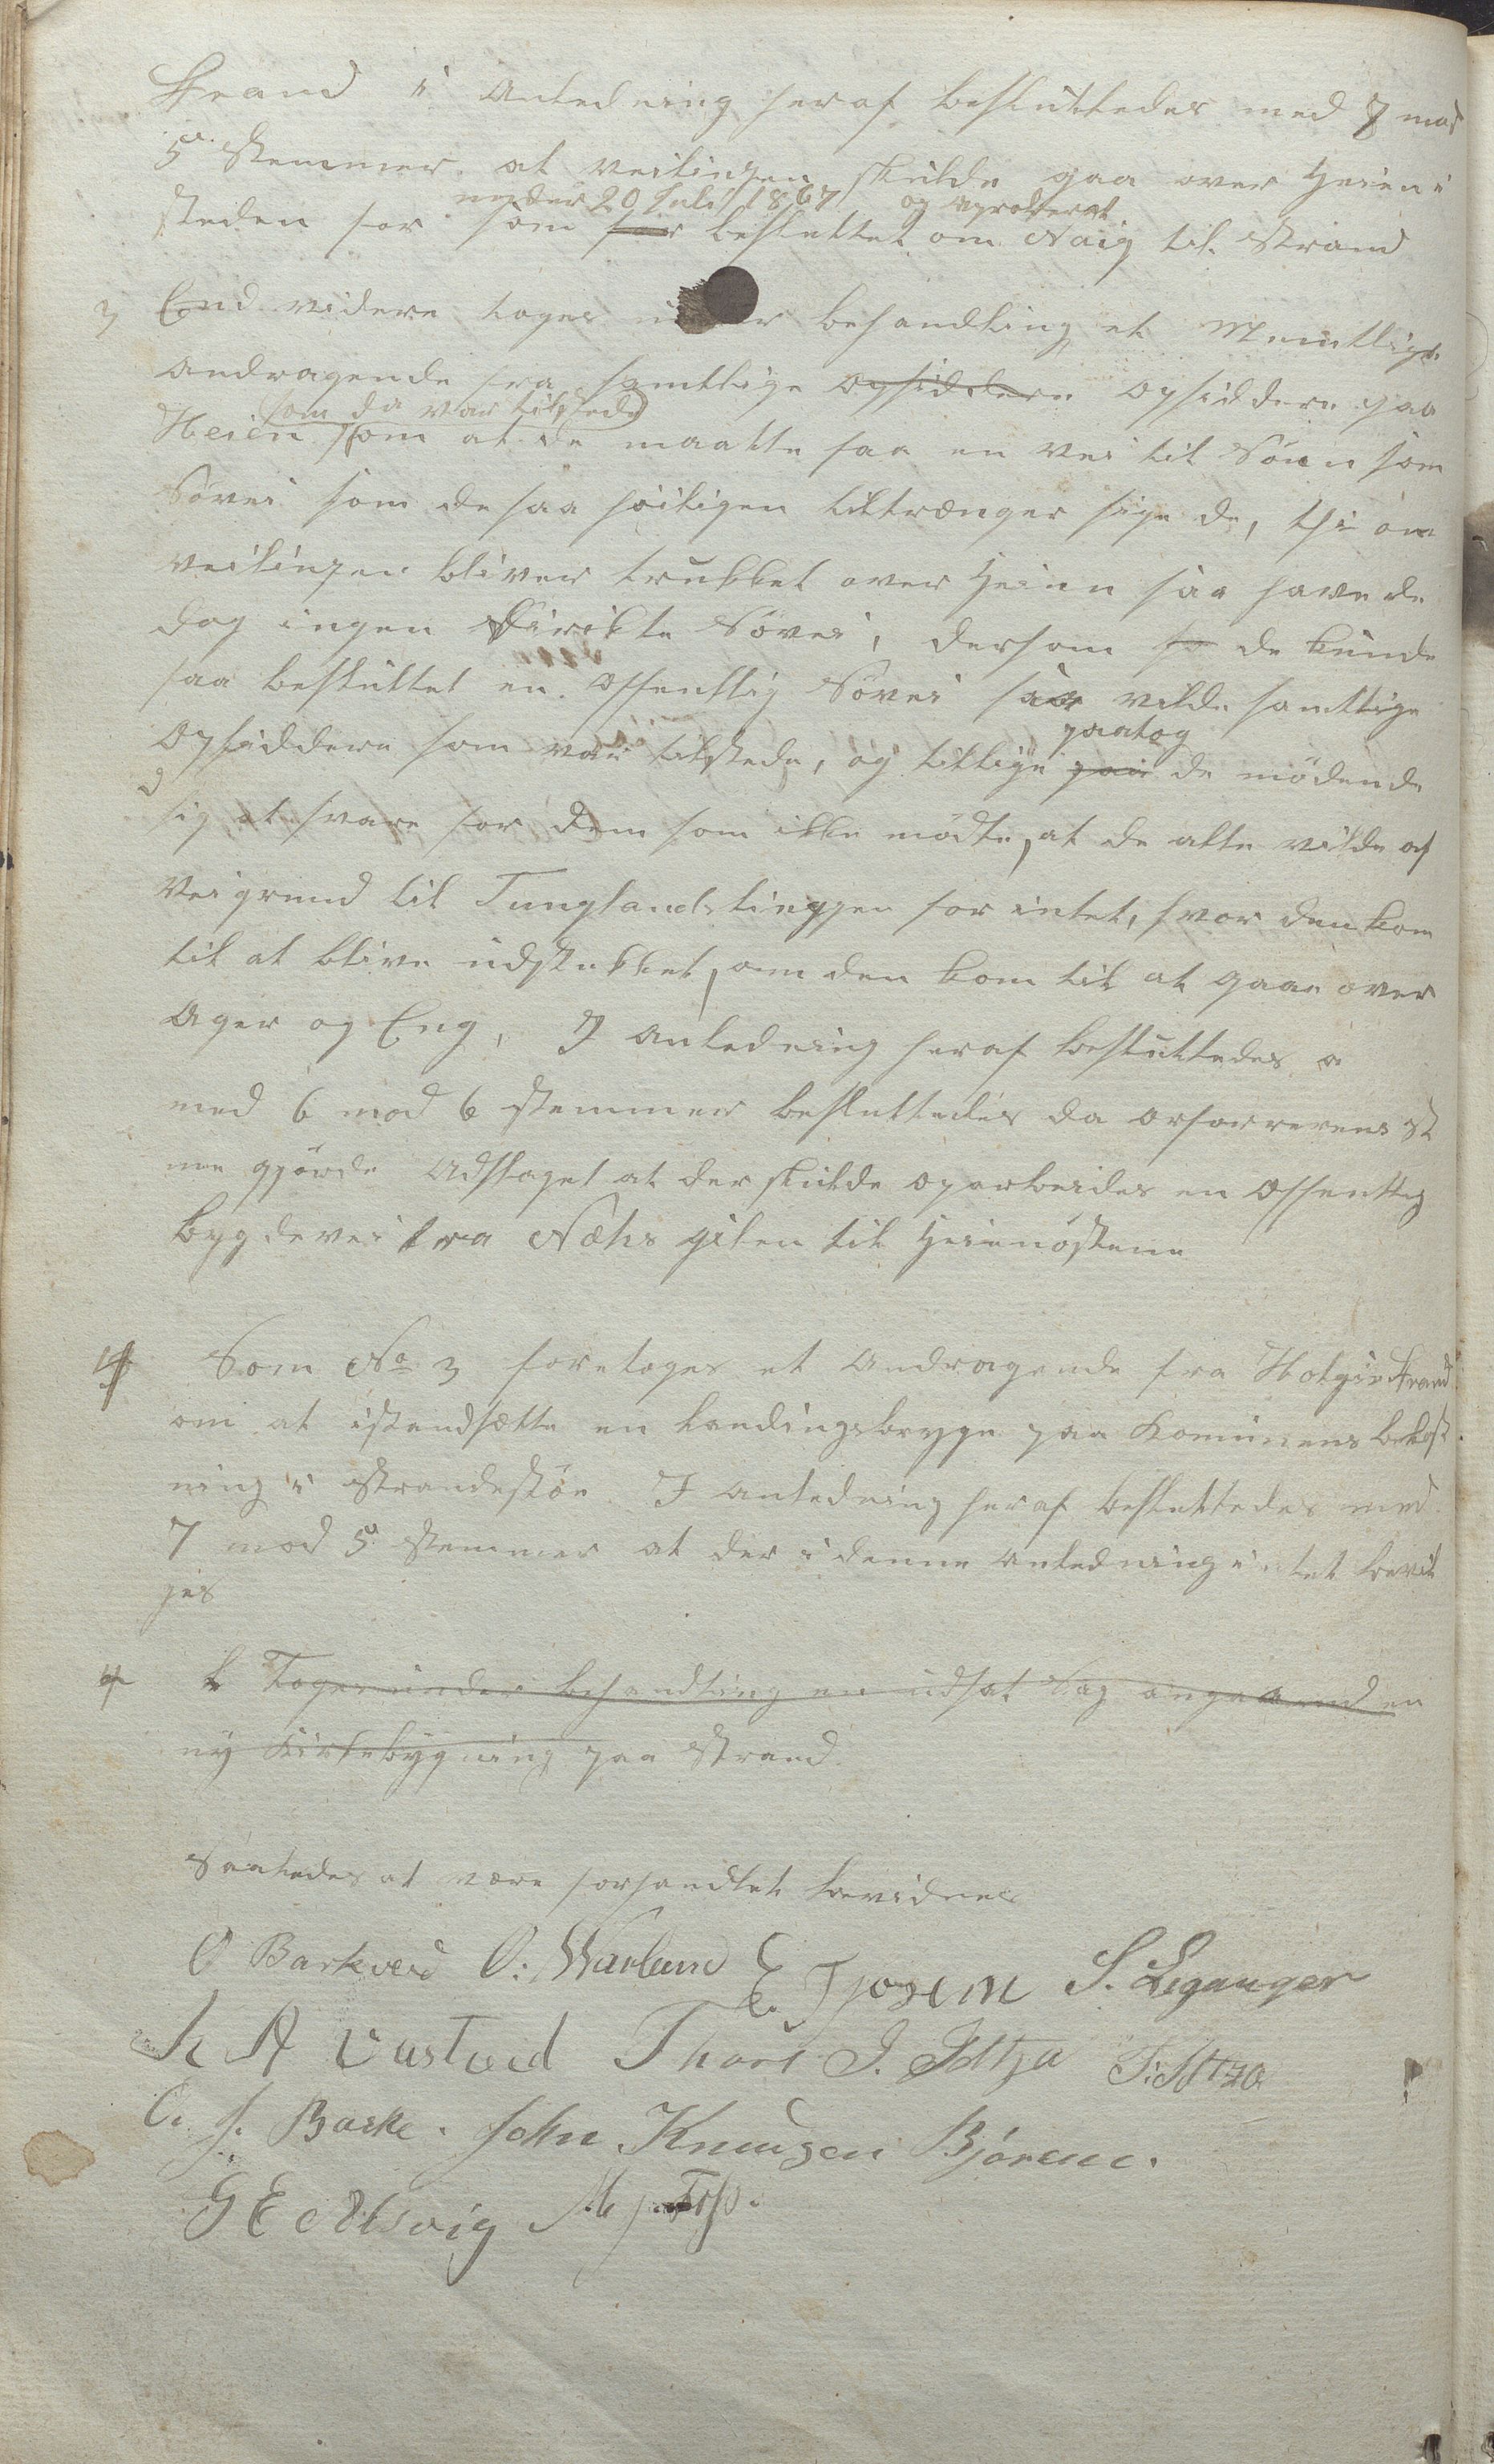 Strand i Anledning heraf besluttedes med 7 mod
5 Stemmer at veilinjen skulde gaa over Heien i
under 20 Juli 1867 og aproberet
steden for som før besluttet om Vaig til Strand
3 End videre toges under behandling et Mundtligt
Andragende fra samtlige Opsiddere Opsiddere paa
som da var tilstede
Heien om at de maatte faa en Vei til Søen som
Søvei som de saa høiligen tiltrænger sige de, thi om
veilinjen bliver trukket over Heien saa have de
dog ingen Direkte Søvei, dersom de kunde
faa besluttet en Offentlig Søvei saa vilde samtlige
paatog
Opsiddere som var tilstede, og tillige de mødende
sig at svare for dem som ikke mødte, at de alle vilde af
Veigrund til Tunglandslinjen for intet, hvor den kom
til at blive udstukket, om den kom til at gaa over
Ager og Eng, I Anledning heraf besluttedes
med 6 mod 6 stemmer besluttedes da Orførerens st
me gjørde Udslaget at der skulde oparbeides en Offentlig
bygdevei fra Næhs gilen til Heienøstene
4 Som No 3 foretoges et Andragende fra Holger Strand
om at istandsætte en landingsbrygge paa Komunens bekost
ning i Strandestøe. I Anledning heraf besluttedes med
7 mod 5 Stemmer at der i denne Anledning intet bevil
ges
4 Toges under behandling en udsat Sag angaaend en
ny Kirkebygning paa Strand.
Saaledes at være forhandlet bevidnes
O Barkved O: Warland E. Tjosem S. Leganger
K A Vastved Thore J. Idtzø T: Idtzø
C. J. Barke. John Knudsen Bjørene.
G E Elsvig M